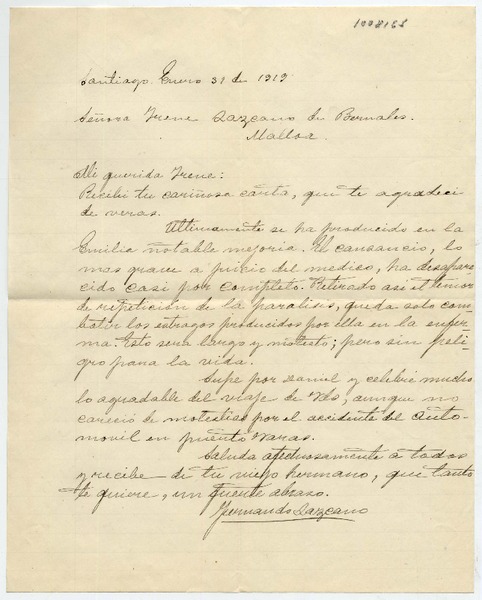 1098166
Santiago. Enero 31 de 1919
Señora Irene Lazcano de Bernales.
Malloa.
Mi querida Irene:
Recibí tu cariñosa carta, que te agradecí
de veras.
Ultimamente se ha producido en la
Emilia notable mejoria. El cansancio, lo
mas grave a juicio del medico, ha desapare-
cido casi por completo. Retirado asi el temor
de repeticion de la paralisis, queda solo com-
batir los estragos producidos por ella en la enfer-
ma. Esto sera largo y molesto; pero sin peli-
gro para la vida.
Supe por Daniel y celebré mucho
lo agradable del viaje de Uds, aunque no
careció de molestias por el accidente del auto-
movil en puerto Varas.
Saluda afectuosamente a todos
y recibe de tu viejo hermano, que tanto
te quiere, un fuerte abrazo.
Fernando Lazcano